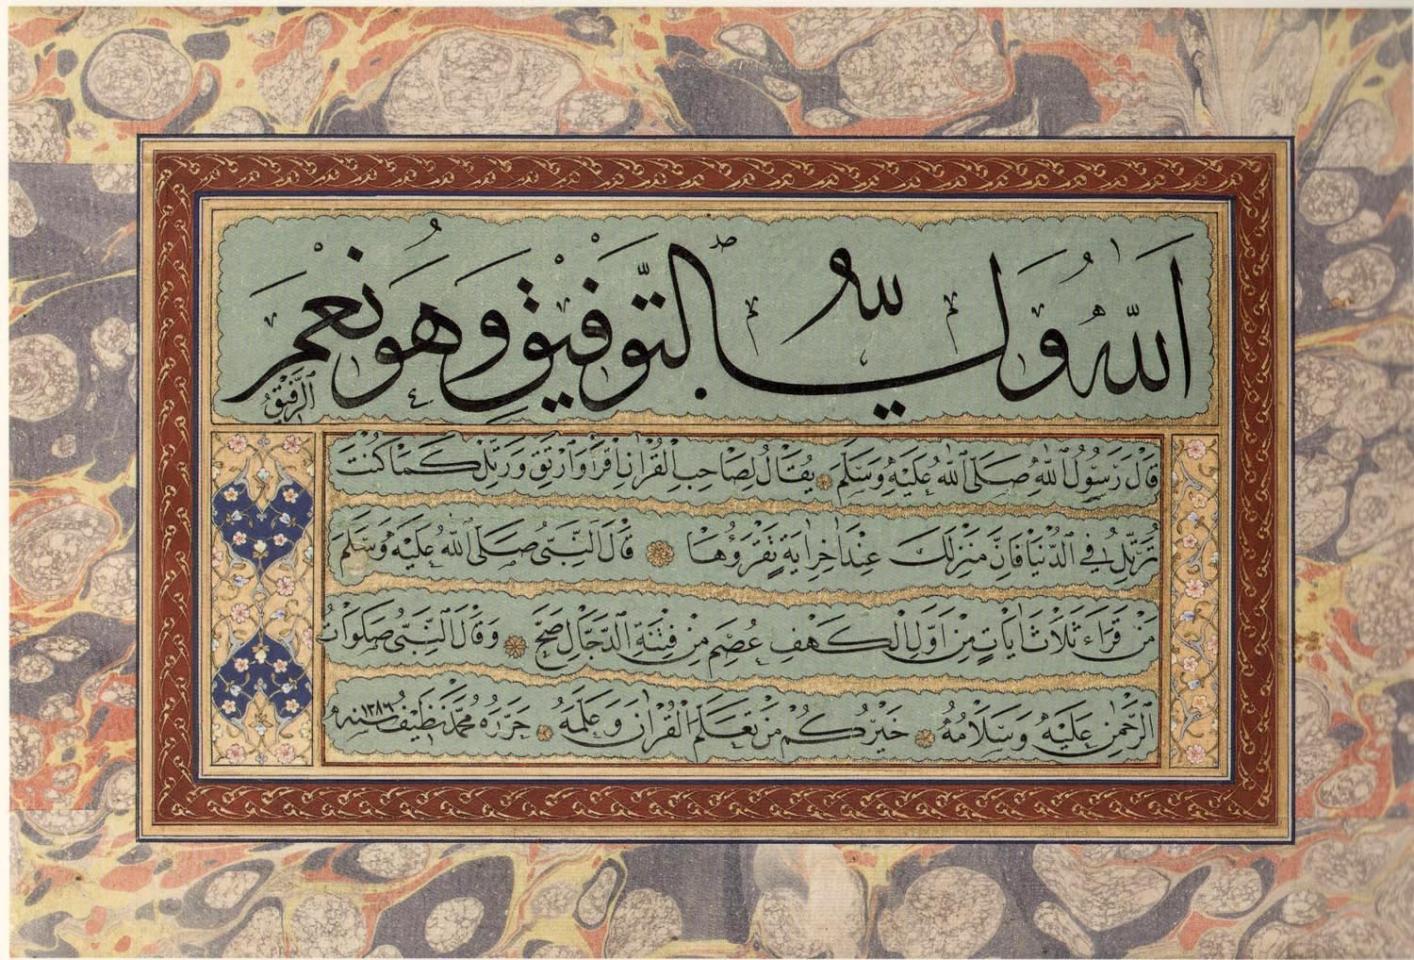 اَللّٰهُ وَلِيُّ التَّوْفِيقِ وَهُوَ نِعْمَ الرَّفِيقُ
قَالَ رَسُولُ اللّٰهِ صَلَّى اللّٰهُ عَلَيْهِ وَسَلَّمَ يُقَالُ لِصَاحِبِ الْقُرْاٰنِ اقْرَأْ وَارْتَقِ وَرَتِّلْ كَمَا كُنْتَ
تُرَتِّلُ فِي الدُّنْيَا فَاِنَّ مَنْزِلَكَ عِنْدَ اٰخِرِ اٰيَةٍ تَقْرَؤُهَا قَالَ النَّبِيُّ صَلَّى اللّٰهُ عَلَيْهِ وَسَلَّمَ
مَنْ قَرَاَءَ ثَلَاثَ اٰيَاتٍ مِنْ اَوَّلِ الْكَهْفِ عُصِمَ مِنْ فِتْنَةِ الدَّجَّالِ صَحَّ وَقَالَ النَّبِيُّ صَلَوَاتُ
الرَّحْمٰنِ عَلَيْهِ وَسَلَامُهُ خَيْرُكُمْ مَنْ تَعَلَّمَ الْقُرْاٰنَ وَعَلَّمَهُ حَرَّرَهُ مُحَمَّد نَظِيف سنه